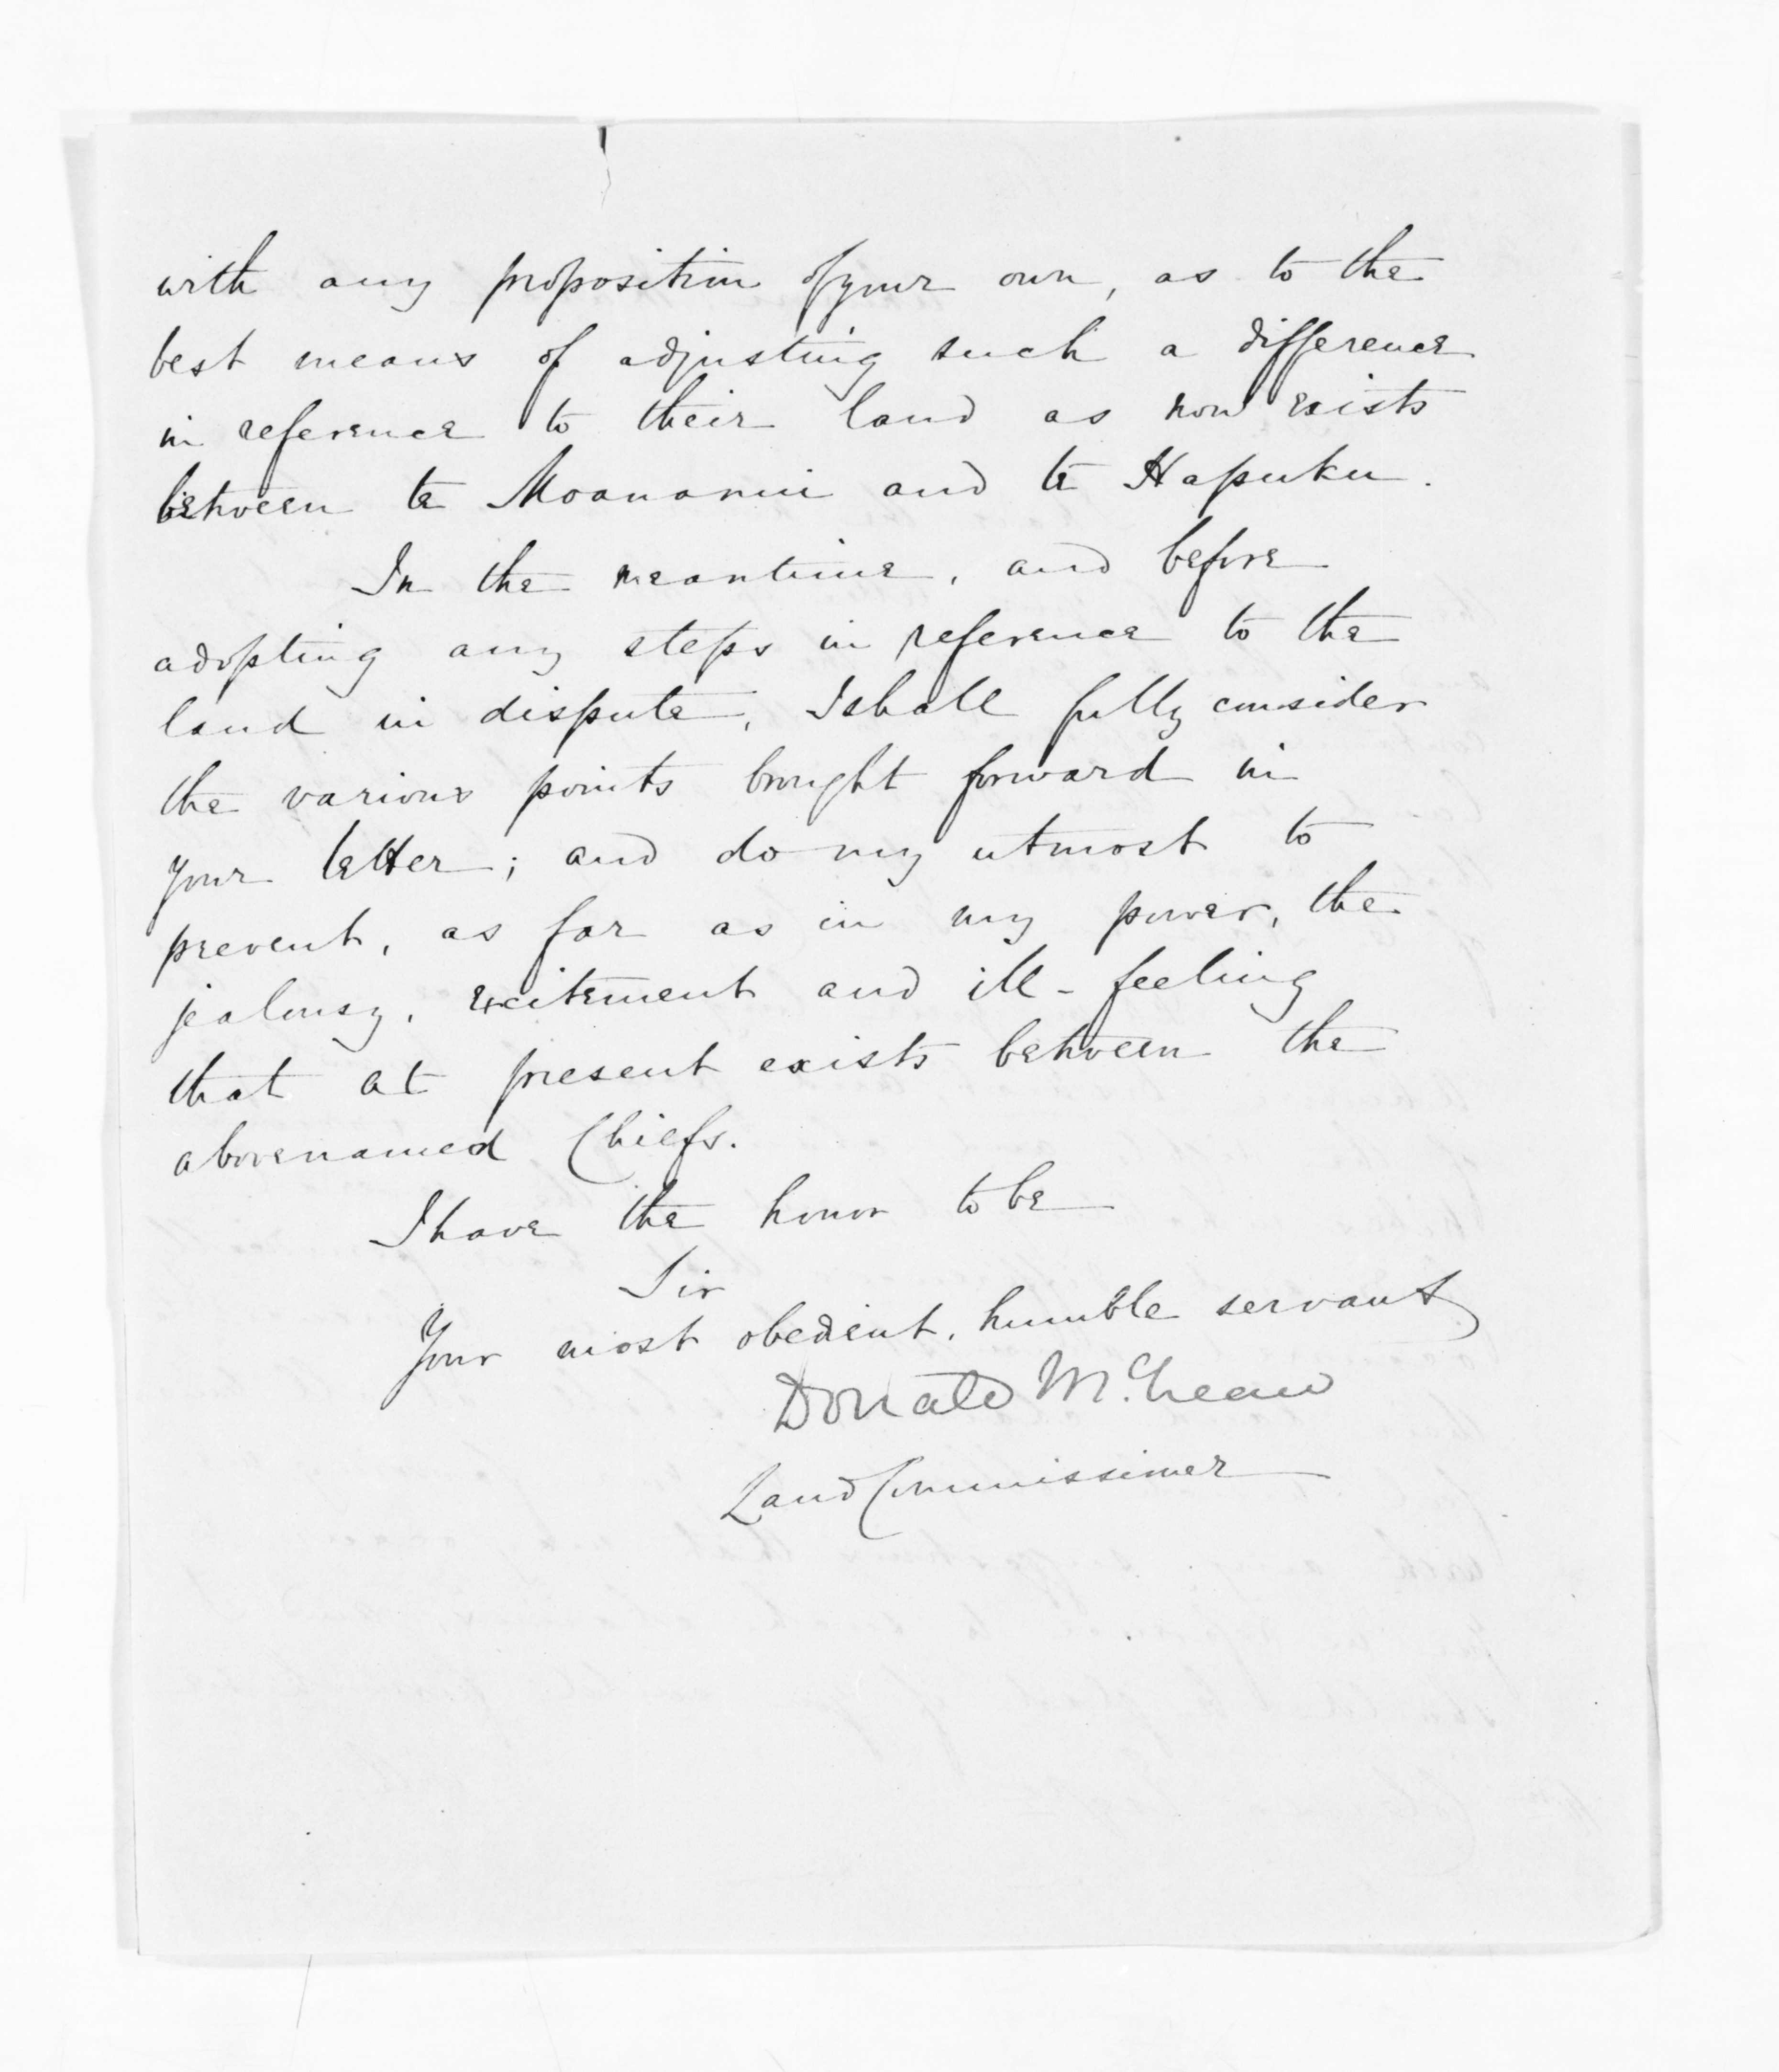 with any proposition of your own, as to the
best means of adjusting such a difference
in reference to their land as now exists
between te Moananui and te Hapuku.
In the meantime, and before
adopting any steps in reference to the
land in dispute, I shall fully consider
the various points brought forward in
your letter; and do my utmost to
prevent, as far as in my power, the
jealousy, excitement and ill-feeling
that at present exists between the
abovenamed Chiefs.
I have the honor to be
Sir
Your most obedient, humble servant
Donald McLean
Land Commissioner